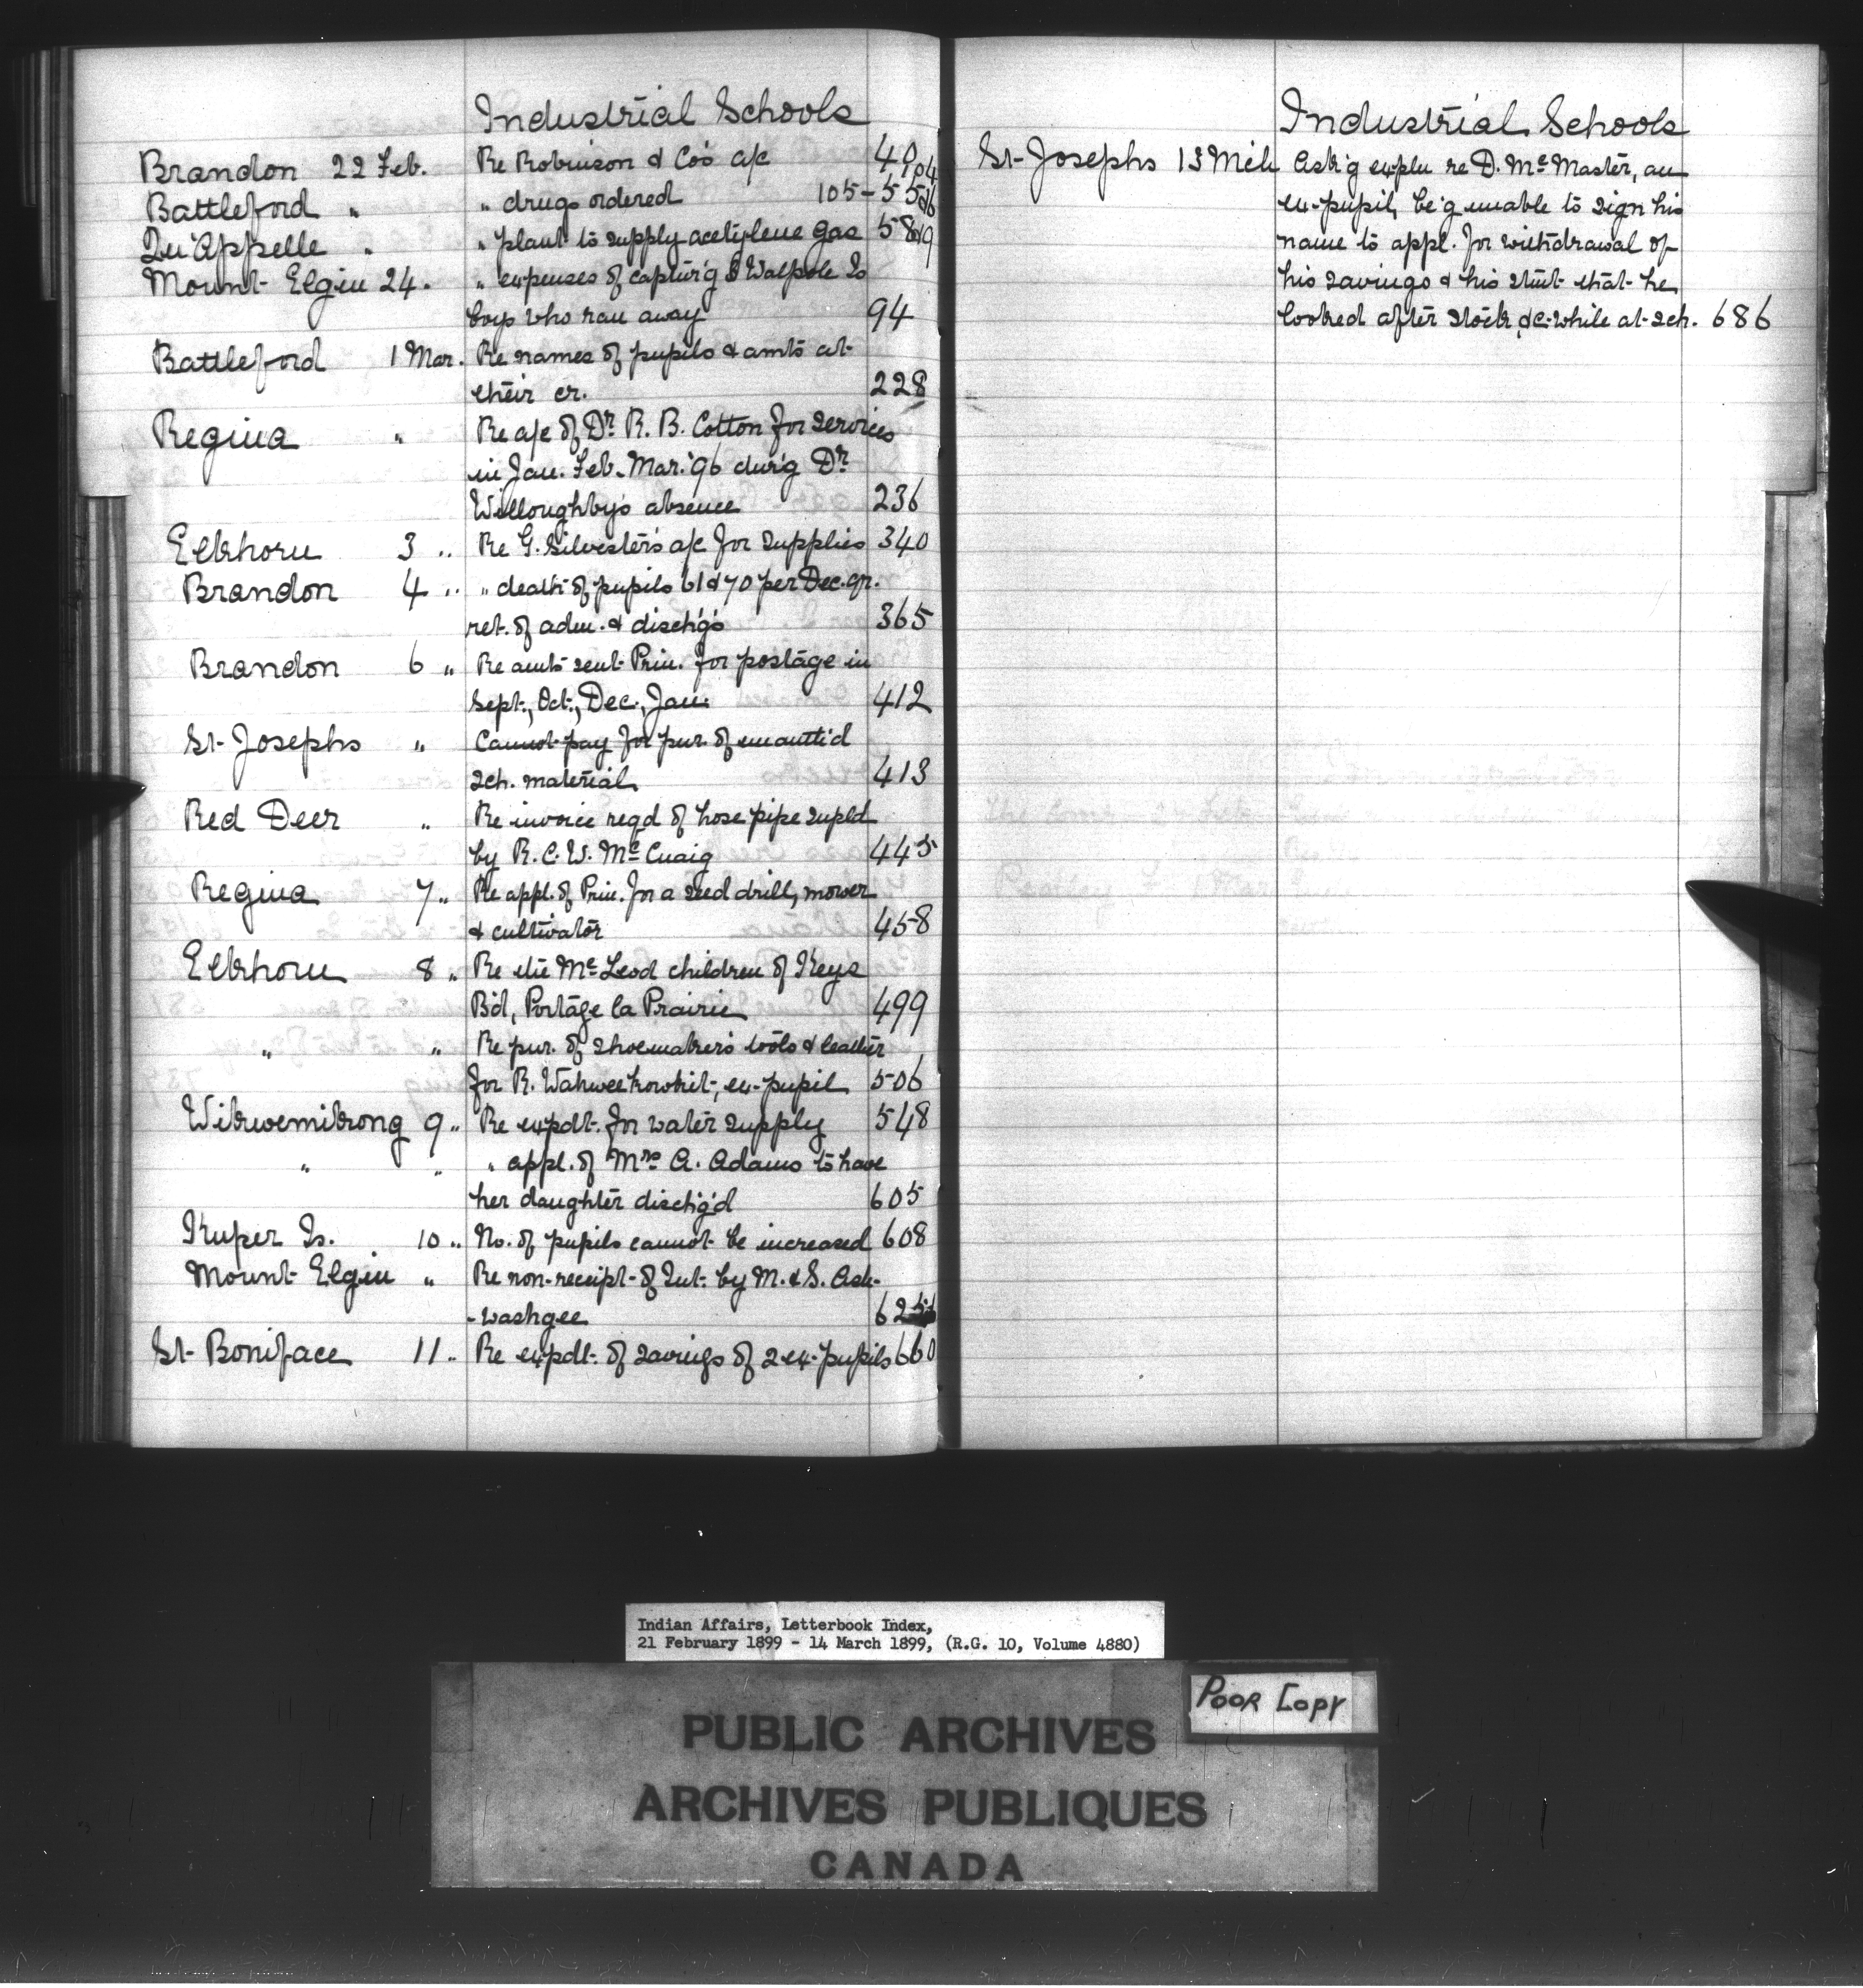 Industrial Schools
Brandon 22 Feb. Re Robinson & Co's a/c 40, 104
Battleford " " drugs ordered 105-5526
Qu'Appelle " " plant to supply acetylene gas 58
Mount Elgin 24. " expenses of captur'g 3 Walpole Is
boys who ran away 94
Battleford 1 Mar. Re names of pupils & amts at
their cr. 228
Regina " Re a/c of Dr. R. B. Cotton for services
in Jan. Feb. Mar. '96 dur'g Dr.
Willoughby's absence 236
Elkhorn 3 " Re G. Silvester's a/c for supplies 340
Brandon 4 " " death of pupils 61 & 70 per Dec. qr.
ret. of adm. & disch'g's 365
Brandon 6 " Re amts sent Prin. for postage in
Sept., Oct., Dec., Jan. 412
St. Josephs " Cannot pay for pur. of unauth'd
sch. material 413
Red Deer " Re invoice reqd of hose pipe supld
by R. C. W. McCuaig 445
Regina 7 " Re appl. of Prin. for a seed drill, mower
& cultivator 458
Elkhorn 8 " Re the McLeod children of Keys
B'd, Portage la Prairie 499
" " Re pur. of shoemaker's tools & leather
for R. ex-pupil 506
Wikwemikong 9 " Re expdt. for water supply 548
" " " appl. of Mrs A. Adams to have
her daughter disch'g'd 605
Kuper Is. 10 " No. of pupils cannot be increased 608
Mount Elgin " Re non-receipt of Int. by M. & S. Ash-
-washgee 62
St. Boniface 11 " Re expdt. of savings of 2 ex-pupils 660
Industrial Schools
St. Josephs 13 Mch Ask'g expln re D. McMaster, an
ex-pupil, be'g unable to sign his
name to appl. for withdrawal of
his savings & his stmt that he
looked after stock, &c. while at sch. 686
Indian Affairs, Letterbook Index,
21 February 1899 - 14 March 1899, (R.G. 10, Volume 4880)
Poor Copy
PUBLIC ARCHIVES
ARCHIVES PUBLIQUES
CANADA